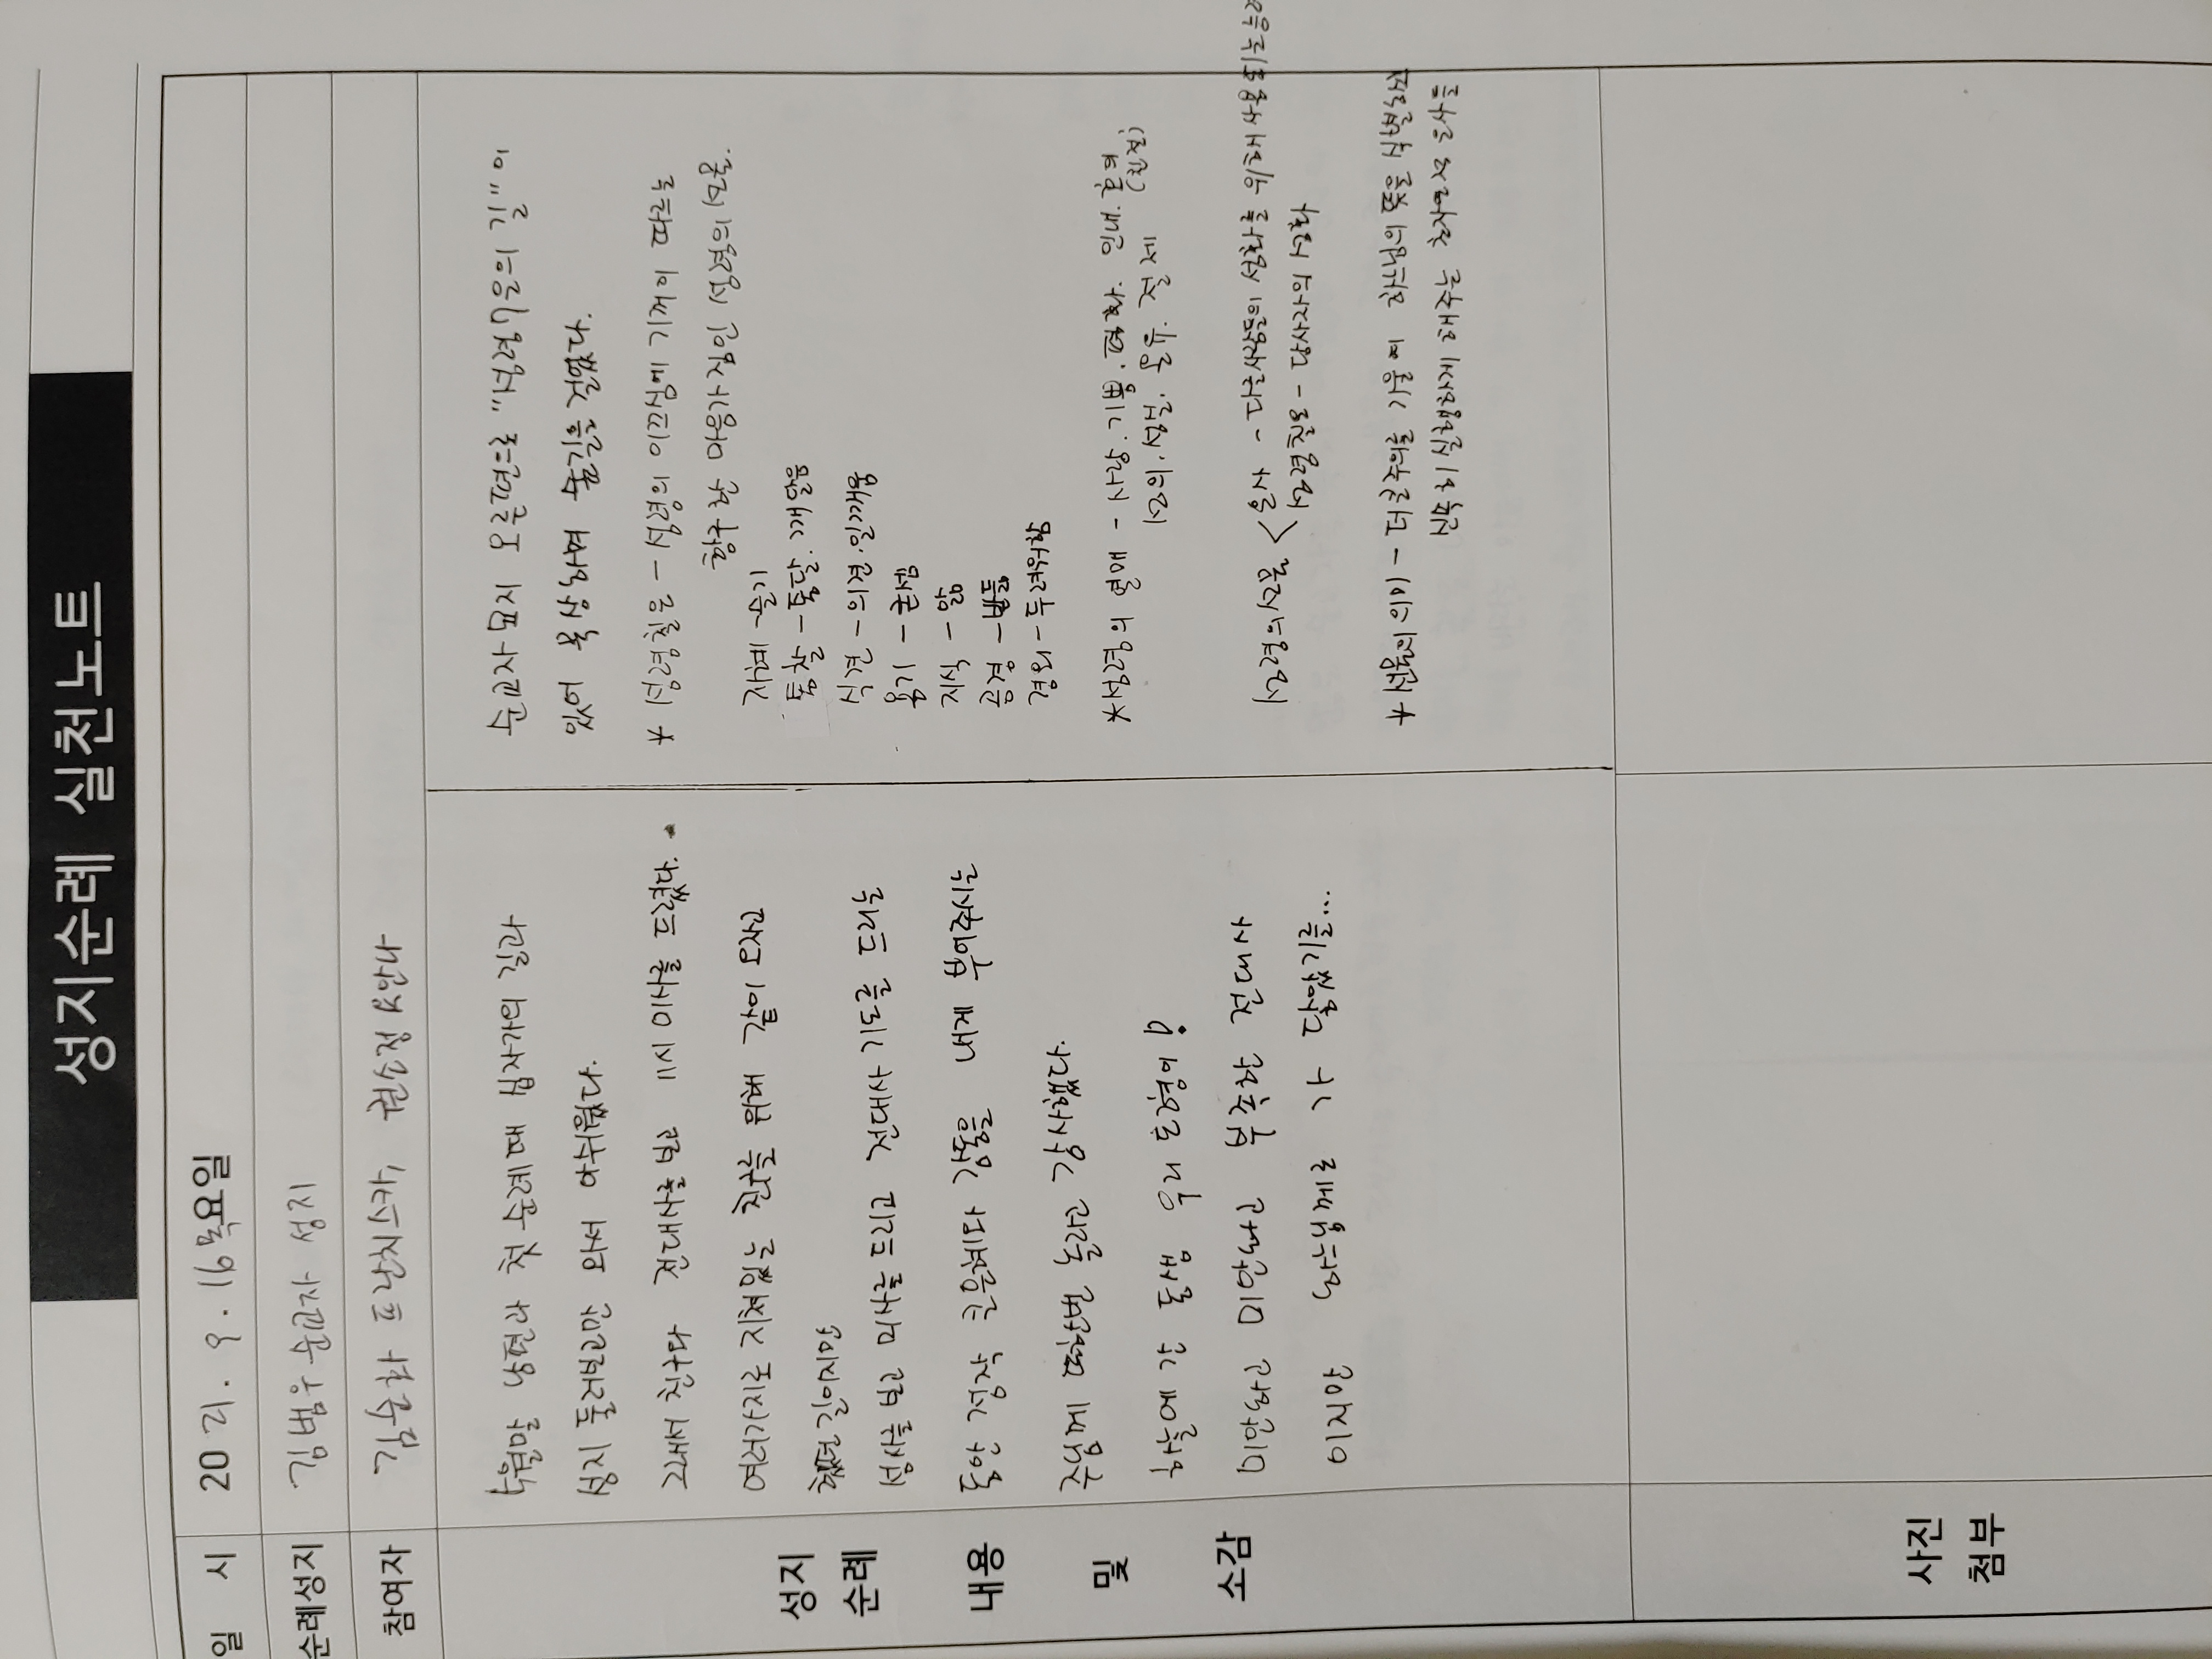 성지순례 실천노트
일 시
2021. 9. 16 목요일
순례성지
김범우 순교자 성지
참여자
김순화 프란치스카, 권소정 요안나
성지
순례
내용
및
소감
5월말 남편과 첫 순례때 십자가의 길과
성지 둘러보고만 와서 아쉬웠다.
그래서 친구와 전대사를 보고 11시 미사를 드렸다.
여러가지로 지쳐있는 친구를 위해 같이 오자고
했던 길이지만
성사를 보고 미사를 드리고 전대사 기도를 드리는
동안 정작 큰은혜와 감동을 내게 부어주시는
주님께 또한번 놀라고 감사했다.
하늘에 간 동생 우리 도형이!
미안하고 미안하고 부족한 전대사
이지만 하느님께로 가 닿았기를...
순교자 묘지 오른편으로 "성령7은의 길"이
있어 묵상하며 숲길을 걸었다.
* 성령칠은 - 성령의 이끄심에 기꺼이 따르는
항구한 마음가짐인 성령의 선물.
지혜 - 슬기
통찰 - 통달. 깨달음
식견 - 의견. 일깨움
용기 - 굳셈
지식 - 앎
공경 - 받듦
경외 - 두려워함
*성령의 열매 - 사랑. 기쁨. 평화. 인내. 호의.
(친절)
선의. 성실. 온유. 절제
성령의 선물 < 은사 - 다른사람들의 성화를 위해 사용되는 능력
성령칠은 - 당사자의 성화
* 선물의 의미 - 더 큰 주의를 기울여 하느님의 뜻을 식별하고
신속히 실행하게 해주는 초자연적 은사들
사진
첨부